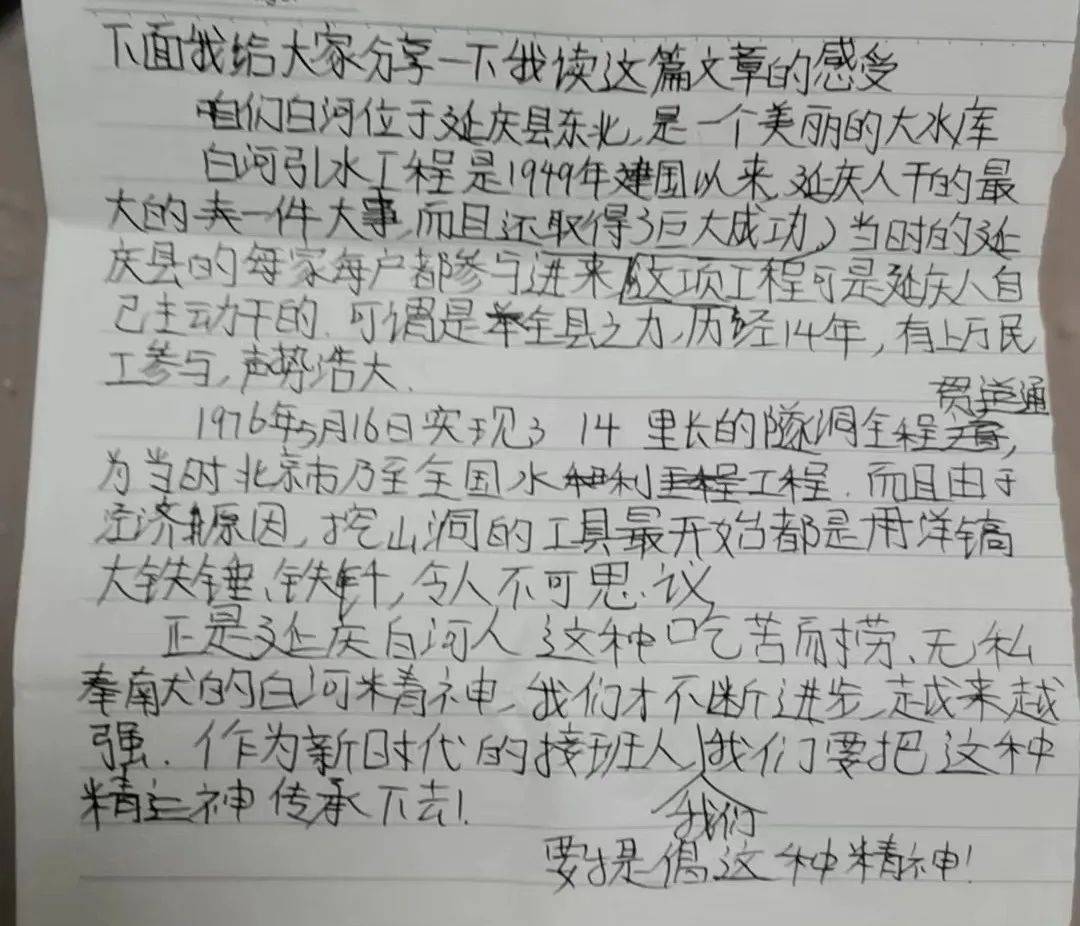 下面我给大家分享一下我读这篇文章的感受
咱们白河位于延庆县东北,是一个美丽的大水库
白河引水工程是1949年建国以来,延庆人干的最
大的一件大事,而且还取得了巨大成功,当时的延
庆县的每家每户都参与进来,这项工程可是延庆人自
己主动干的.可谓是举全县之力,历经14年,有上万民
工参与,声势浩大.
贯通
1976年5月16日实现了 14 里长的隧洞全程,
为当时北京市乃至全国水利工程.而且由于
经济原因,挖山洞的工具最开始都是用洋镐
大铁锤、铁钎,令人不可思议,
正是延庆白河人这种吃苦耐劳、无私
奉献的白河精神,我们才不断进步,越来越
强.作为新时代的接班人,我们要把这种
精神传承下去!
我们
要提倡这种精神!